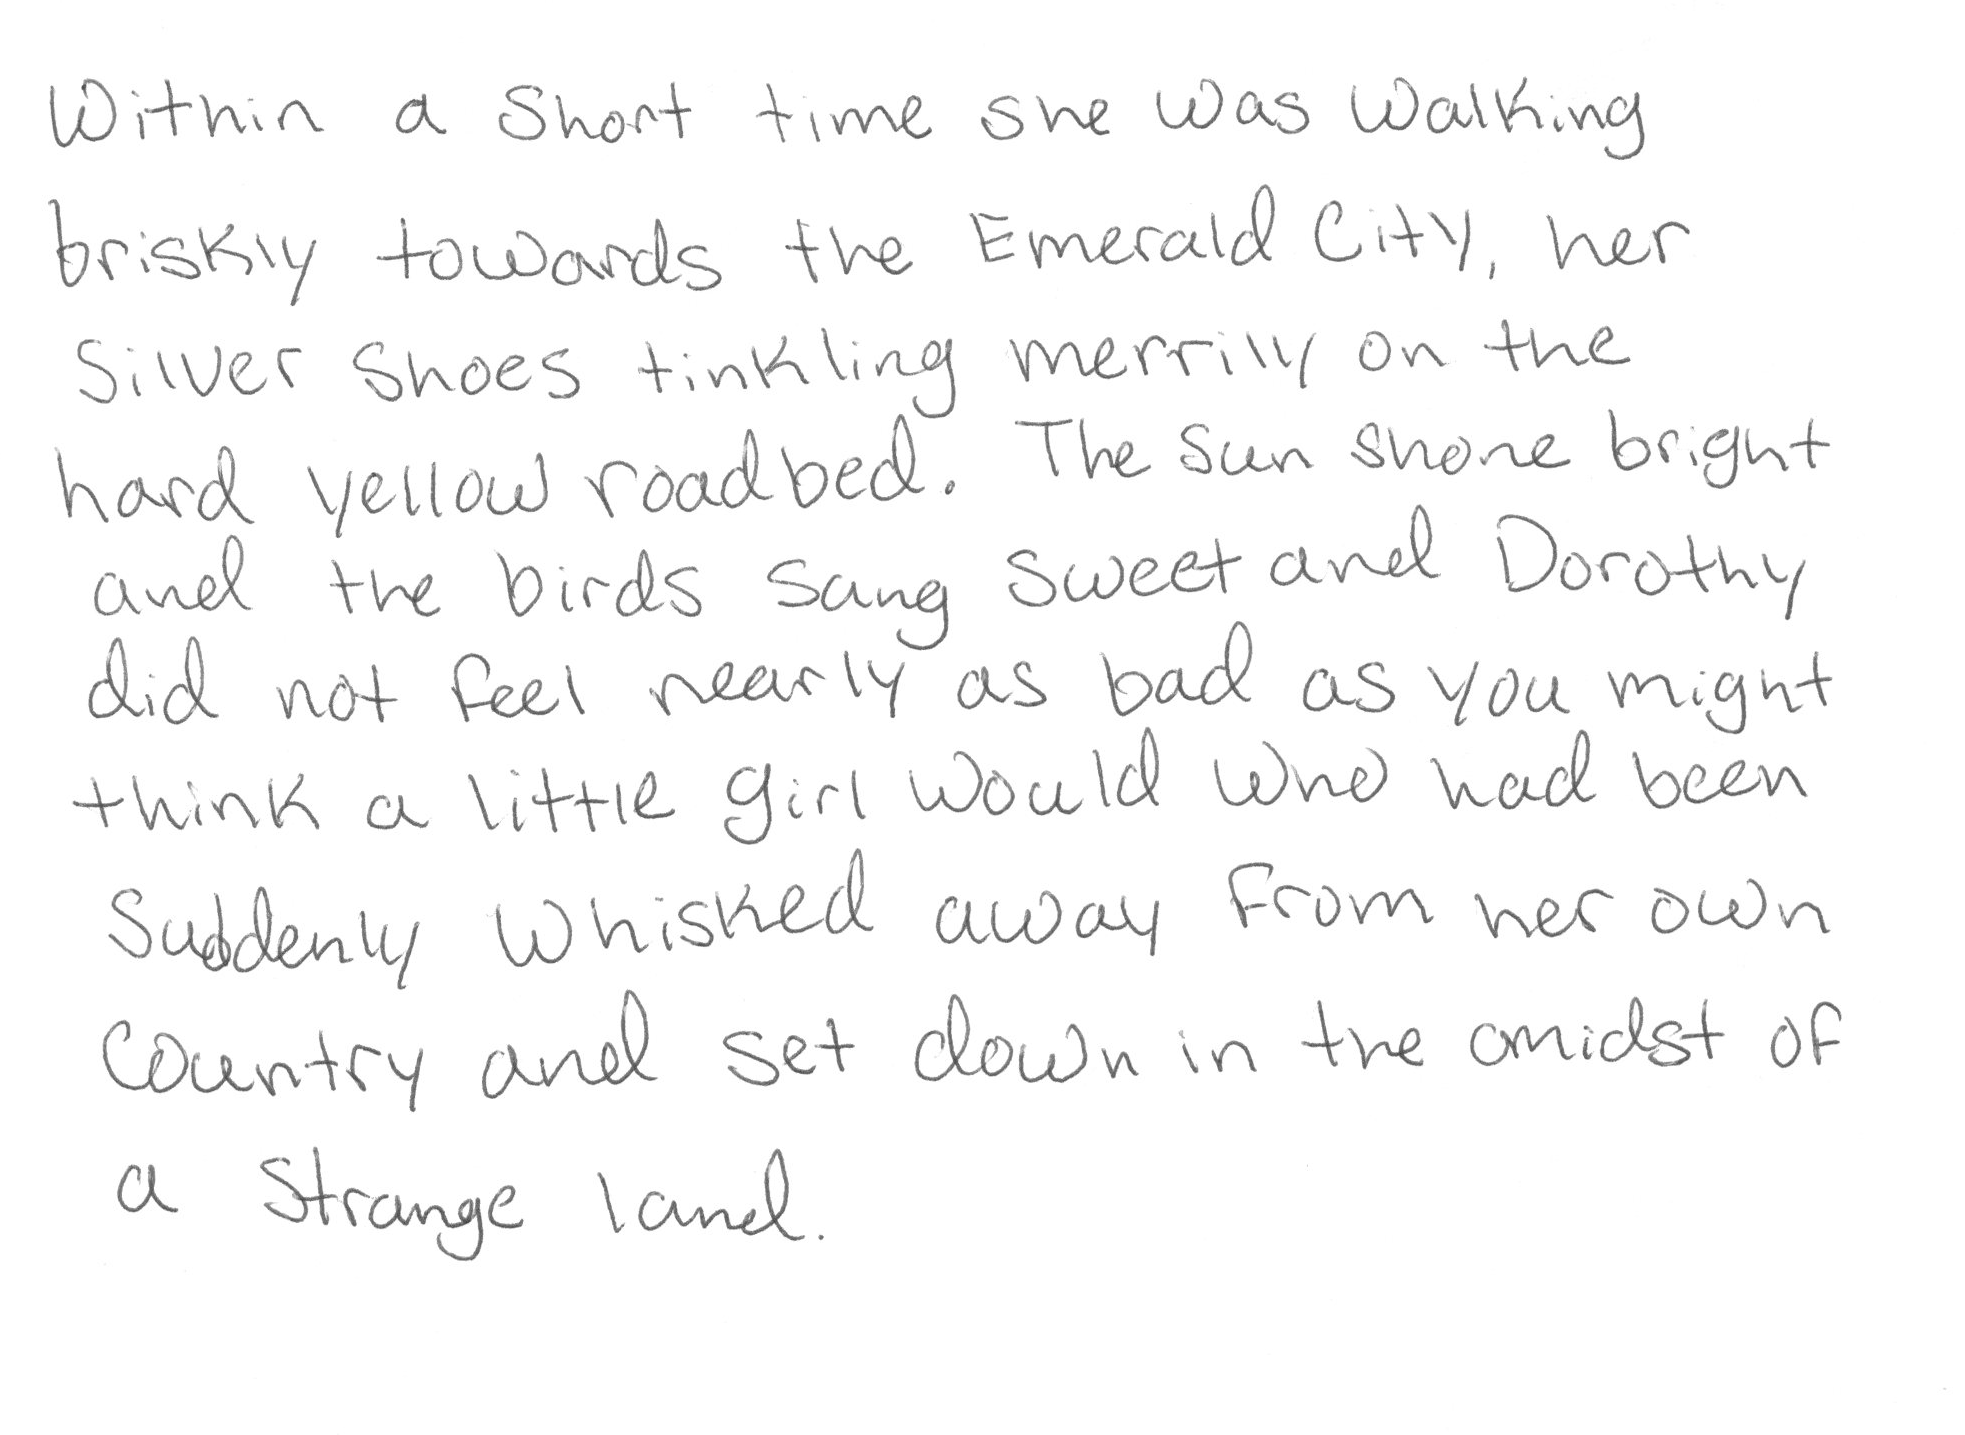 Within a short time she was walking
briskly towards the Emerald City, her
Silver Shoes tinkling merrily on the
hard yellow roadbed. The sun shone bright
and the birds sang sweet and Dorothy
did not feel nearly as bad as you might
think a little girl would who had been
suddenly whisked away from her own
country and set down in the amidst of
a strange land.